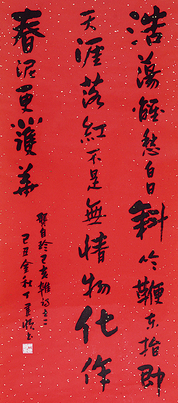 浩蕩離愁白日斜吟鞭東指即
天涯落紅不是無情物化作
春泥更護華
龔自珍己亥雜詩之一
己丑金秋丁